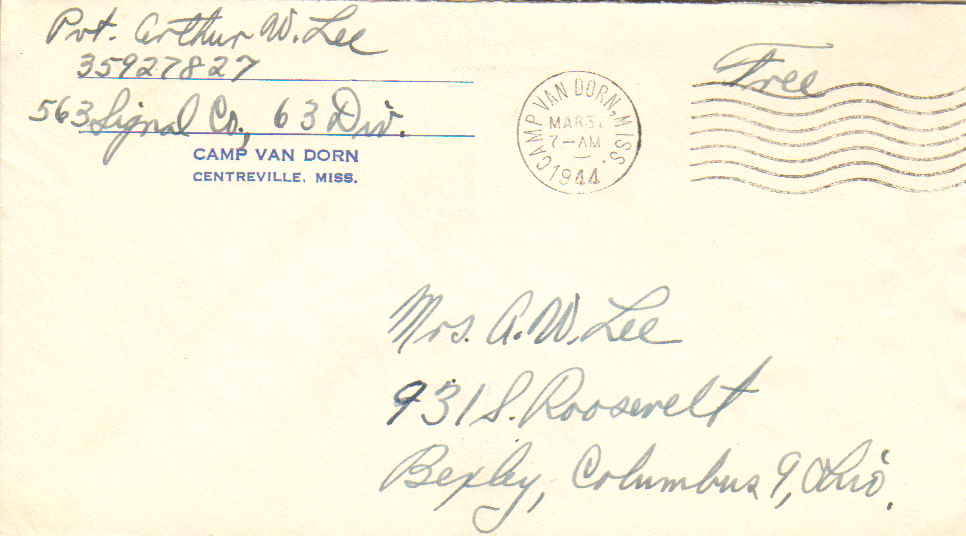 Pvt. Arthur W. Lee
35927827
563 Signal Co., 63 Div.
CAMP VAN DORN
CENTREVILLE, MISS.
CAMP VAN DORN, MISS.
MAR 31
7-AM
1944
Free
Mrs. A. W. Lee
931 S. Roosevelt
Bexley, Columbus 9, Ohio.